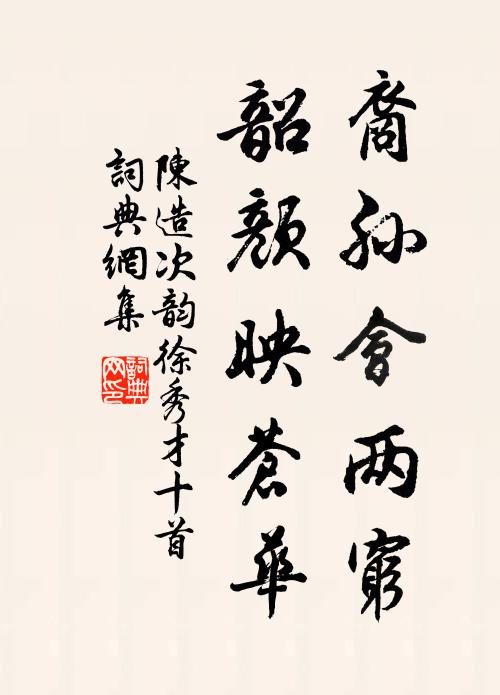 裔孫會两窮
韶顏映蒼華
陳造次韵徐秀才十首
詞典網集
詞典
网印